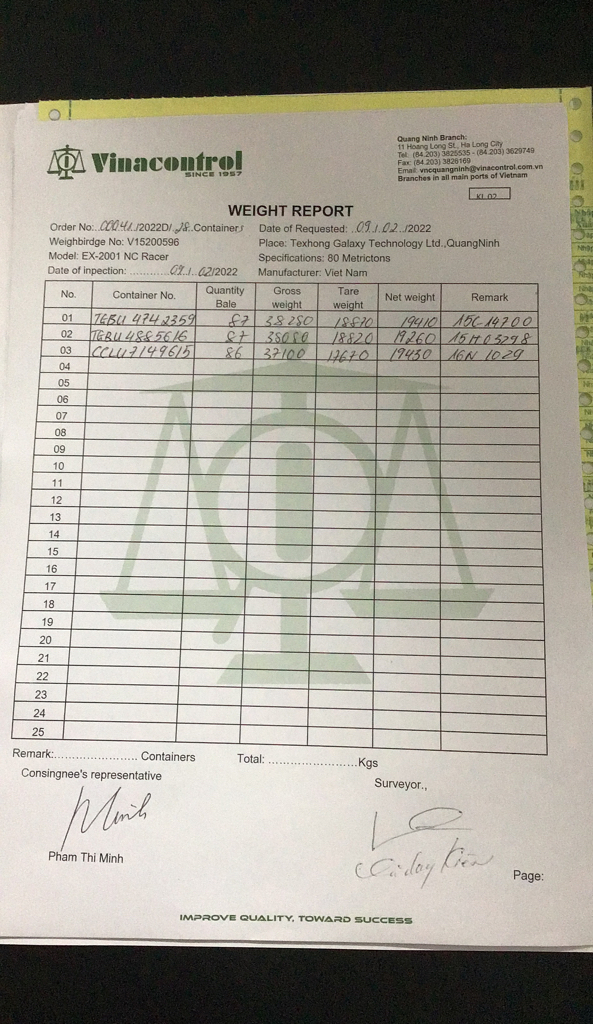 Vinacontrol
SINCE 1957
Quang Ninh Branch:
11 Hoang Long St., Ha Long City
Tel: (84.203) 3825535 - (84.203) 3629749
Fax: (84.203) 3826169
Email: vncquangninh@vinacontrol.com.vn
Branches in all main ports of Vietnam
KL 02
WEIGHT REPORT
Order No: 00041/2022D/.28.Containers Date of Requested: 09/02/2022
Weighbirdge No: V15200596 Place: Texhong Galaxy Technology Ltd.,QuangNinh
Model: EX-2001 NC Racer Specifications: 80 Metrictons
Date of inpection: ............09/02/2022 Manufacturer: Viet Nam
No. Container No. Quantity Bale Gross weight Tare weight Net weight Remark
01 TEBU 4742359 87 38280 18870 19410 15C 14700
02 TEBU 4885616 87 38080 18820 19260 15H 03298
03 CCLU7149615 86 37100 17670 19430 16N 1029
04
05
06
07
08
09
10
11
12
13
14
15
16
17
18
19
20
21
22
23
24
25
Remark:...................... Containers Total: .......................Kgs
Consingnee's representative Surveyor.,
Minh
Pham Thi Minh
Page:
IMPROVE QUALITY, TOWARD SUCCESS